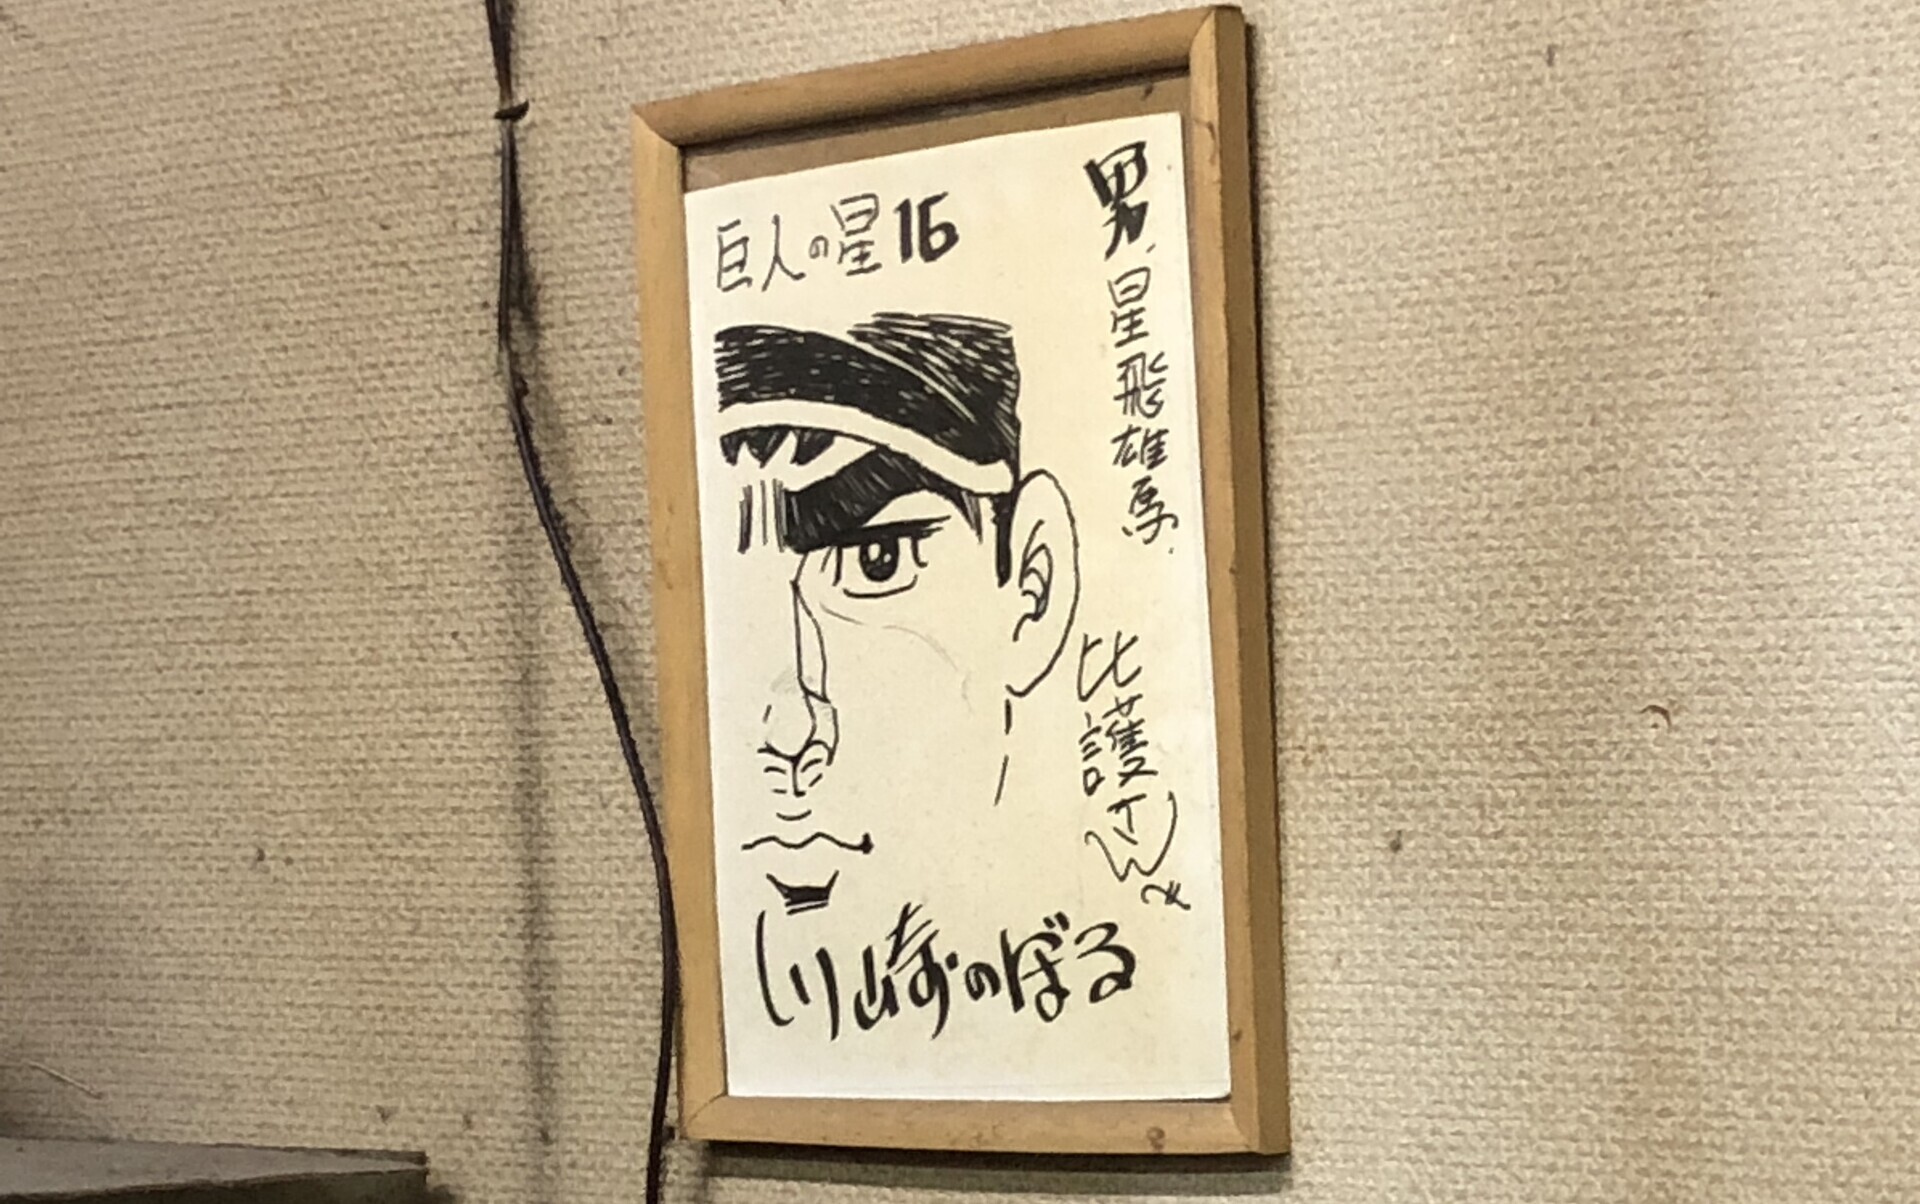 巨人の星16
男、星飛雄馬.
比護
川崎のぼる